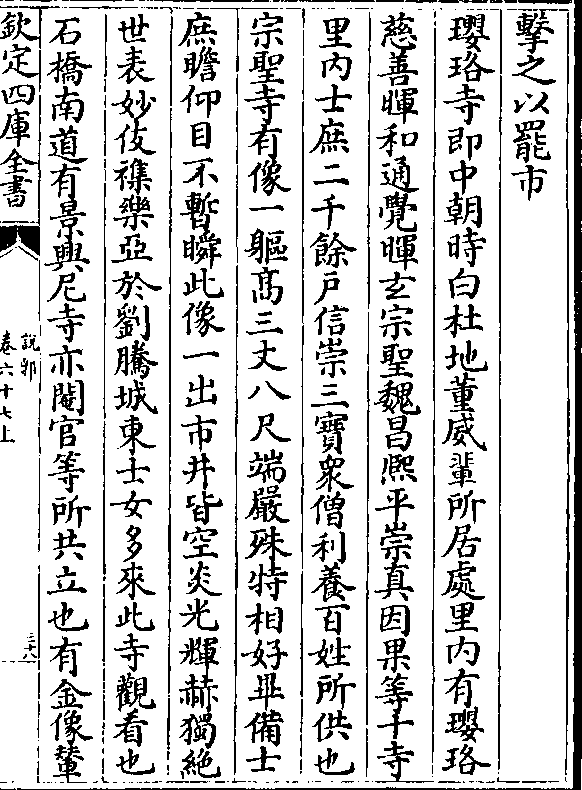 擊之以罷市
瓔珞寺即中朝時白杜地董威輩所居處里内有瓔珞
慈善暉和通覺暉玄宗聖魏昌熈平崇真因果等十寺
里内士庶二千餘户信崇三寶衆僧利養百姓所供也
宗聖寺有像一軀髙三丈八尺端嚴殊特相好畢備士
庶瞻仰目不暫瞬此像一出市井皆空炎光輝赫獨絶
世表妙伎襍樂亞於劉騰城東士女多來此寺觀看也
石橋南道有景興尼寺亦閹官等所共立也有金像輦
欽定四庫全書
説郛
卷六十七上
三十八